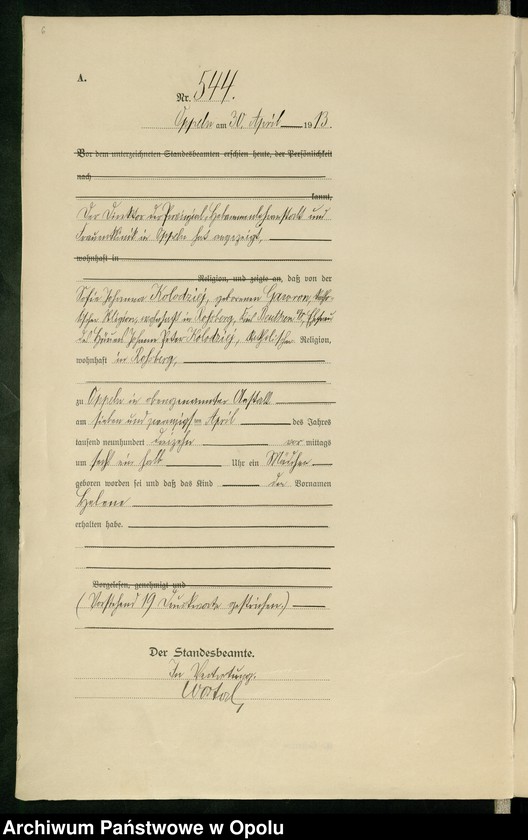 6
A.
Nr. 544.
Oppeln am 30. April 1913.
Vor dem unterzeichneten Standesbeamten erschien heute, der Persönlichkeit
nach
kannt,
Der Direktor der Provinzial-Hebammenlehranstalt und
Frauenklinik in Oppeln hat angezeigt,
wohnhaft in
Religion, und zeigte an, daß von der
Sofie Johanna Kolodziej, geborenen Gawron, katho-
lischer Religion, wohnhaft in Roßberg, Ehefrau
des Johann Peter Kolodziej, katholischer Religion,
wohnhaft in Roßberg,
zu Oppeln in obengenannter Anstalt
am sieben und zwanzigsten April des Jahres
tausend neunhundert dreizehn vor mittags
um sechs ein halb Uhr ein Mädchen
geboren worden sei und daß das Kind den Vornamen
Helene
erhalten habe.
Vorgelesen, genehmigt und
(Vorstehend 19 Druckworte gestrichen.)
Der Standesbeamte.
In Vertretung.
Archiwum Państwowe w Opolu